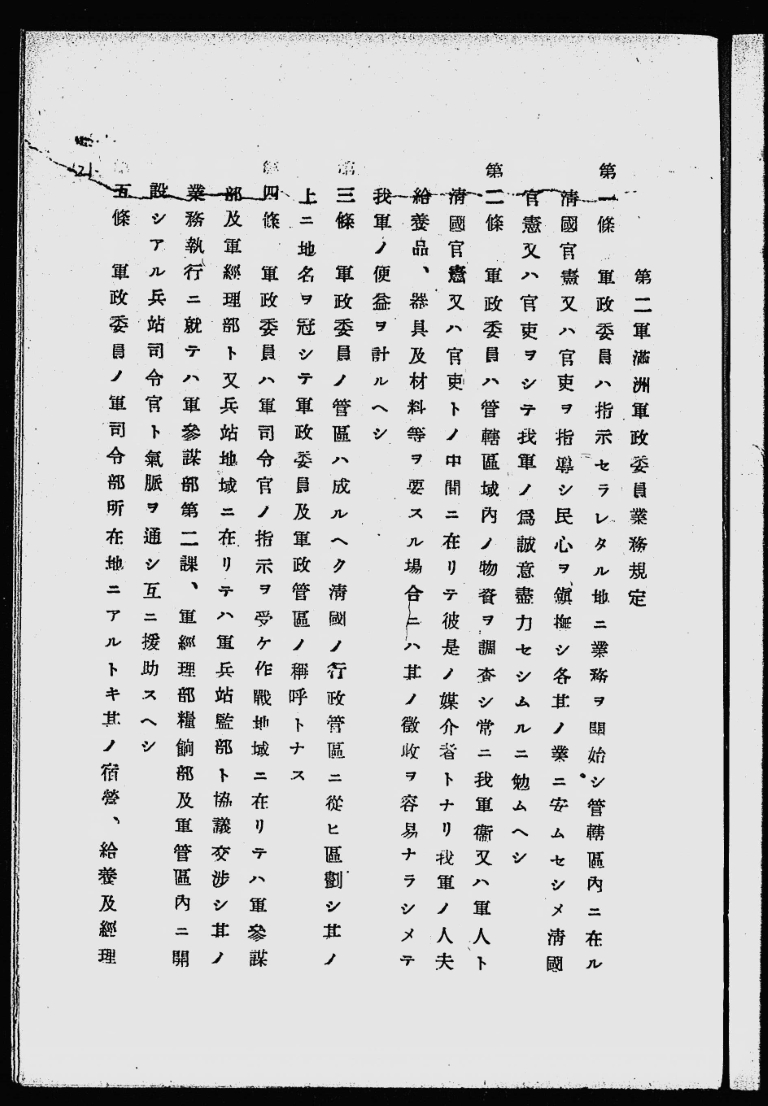 第二軍滿洲軍政委員業務規定
第一條　軍政委員ハ指示セラレタル地ニ業務ヲ開始シ管轄區內ニ在ル
淸國官憲又ハ官吏ヲ指導シ民心ヲ鎭撫シ各其ノ業ニ安ムセシメ淸國
官憲又ハ官吏ヲシテ我軍ノ爲誠意盡力セシムルニ勉ムヘシ
第二條　軍政委員ハ管轄區域內ノ物資ヲ調査シ常ニ我軍衞又ハ軍人ト
淸國官憲又ハ官吏トノ中間ニ在リテ彼是ノ媒介者トナリ我軍ノ人夫
給養品、器具及材料等ヲ要スル場合ニハ其ノ徵收ヲ容易ナラシメテ
我軍ノ便益ヲ計ルヘシ
第三條　軍政委員ノ管區ハ成ルヘク淸國ノ行政管區ニ從ヒ區劃シ其ノ
上ニ地名ヲ冠シテ軍政委員及軍政管區ノ稱呼トナス
第四條　軍政委員ハ軍司令官ノ指示ヲ受ケ作戰地域ニ在リテハ軍參謀
部及軍經理部ト又兵站地域ニ在リテハ軍兵站監部ト協議交涉シ其ノ
業務執行ニ就テハ軍參謀部第二課、軍經理部糧餉部及軍管區內ニ開
設シアル兵站司令官ト氣脈ヲ通シ互ニ援助スヘシ
五條　軍政委員ノ軍司令部所在地ニアルトキ其ノ宿營、給養及經理